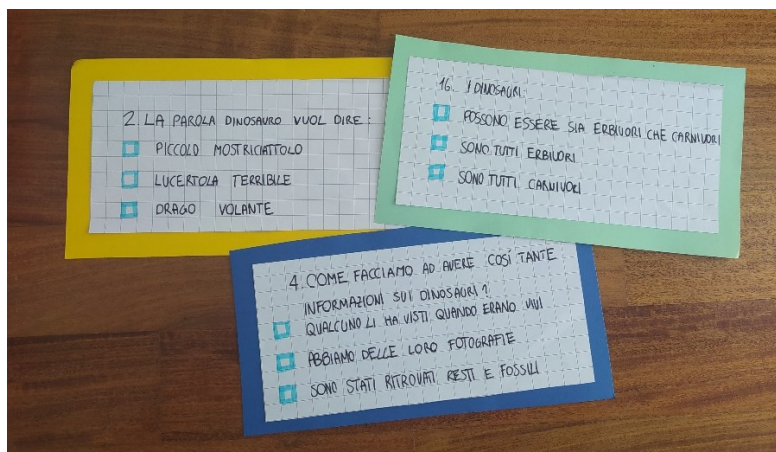 2. LA PAROLA DINOSAURO VUOL DIRE:
PICCOLO MOSTRICIATTOLO
LUCERTOLA TERRIBILE
DRAGO VOLANTE
16. I DINOSAURI:
POSSONO ESSERE SIA ERBIVORI CHE CARNIVORI
SONO TUTTI ERBIVORI
SONO TUTTI CARNIVORI
4. COME FACCIAMO AD AVERE COSÍ TANTE
INFORMAZIONI SUI DINOSAURI?
QUALCUNO LI HA VISTI QUANDO ERANO VIVI
ABBIAMO DELLE LORO FOTOGRAFIE
SONO STATI RITROVATI RESTI E FOSSILI